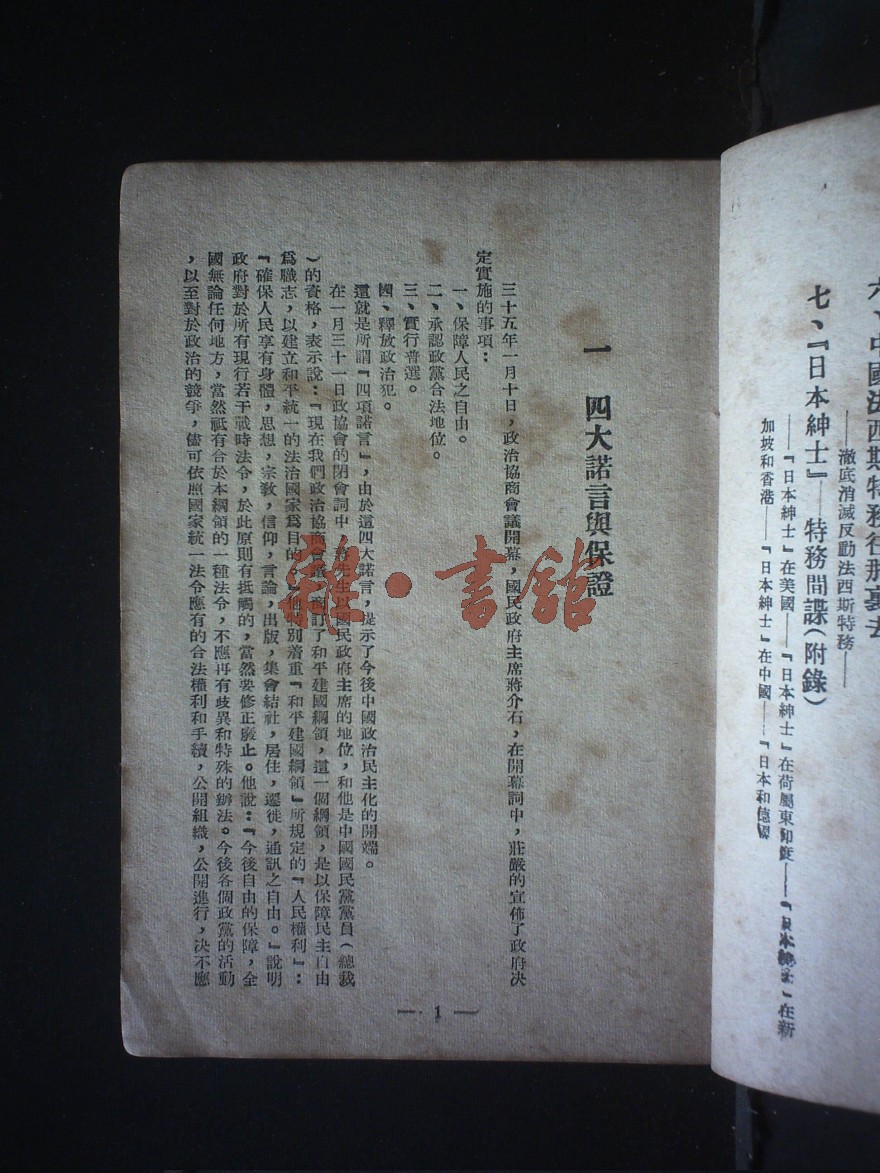 六、中國法西斯特務往那裏去
——澈底消滅反動法西斯特務——
七、『日本紳士』——特務間諜(附錄)
——『日本紳士』在美國——『日本紳士』在荷屬東印度——『日本紳士』在新
加坡和香港——『日本紳士』在中國——『日本和德國
一 四大諾言與保證
三十五年一月十日,政治協商會議開幕,國民政府主席蔣介石,在開幕詞中,莊嚴的宣佈了政府决
定實施的事項:
一、保障人民之自由。
二、承認政黨合法地位。
三、實行普選。
四、釋放政治犯。
這就是所謂『四項諾言』,由於這四大諾言,提示了今後中國政治民主化的開端。
在一月三十一日政協會的閉會詞中,蔣先生以國民政府主席的地位,和他是中國國民黨黨員(總裁
)的資格,表示說:『現在我們政治協商會議,商訂了和平建國綱領,這一個綱領,是以保障民主自由
爲職志,以建立和平統一的法治國家爲目的。』他特別着重『和平建國綱領』所規定的『人民權利』:
『確保人民享有身體,思想,宗敎,信仰,言論,出版,集會結社,居住,遷徙,通訊之自由。』說明
政府對於所有現行若干戰時法令,於此原則有抵觸的,當然要修正廢止。他說:『今後自由的保障,全
國無論任何地方,當然祗有合於本綱領的一種法令,不應再有歧異和特殊的辦法。今後各個政黨的活動
,以至對於政治的競爭,儘可依照國家統一法令應有的合法權利和手續,公開組織,公開進行,决不應
— 1 —
雜·書館